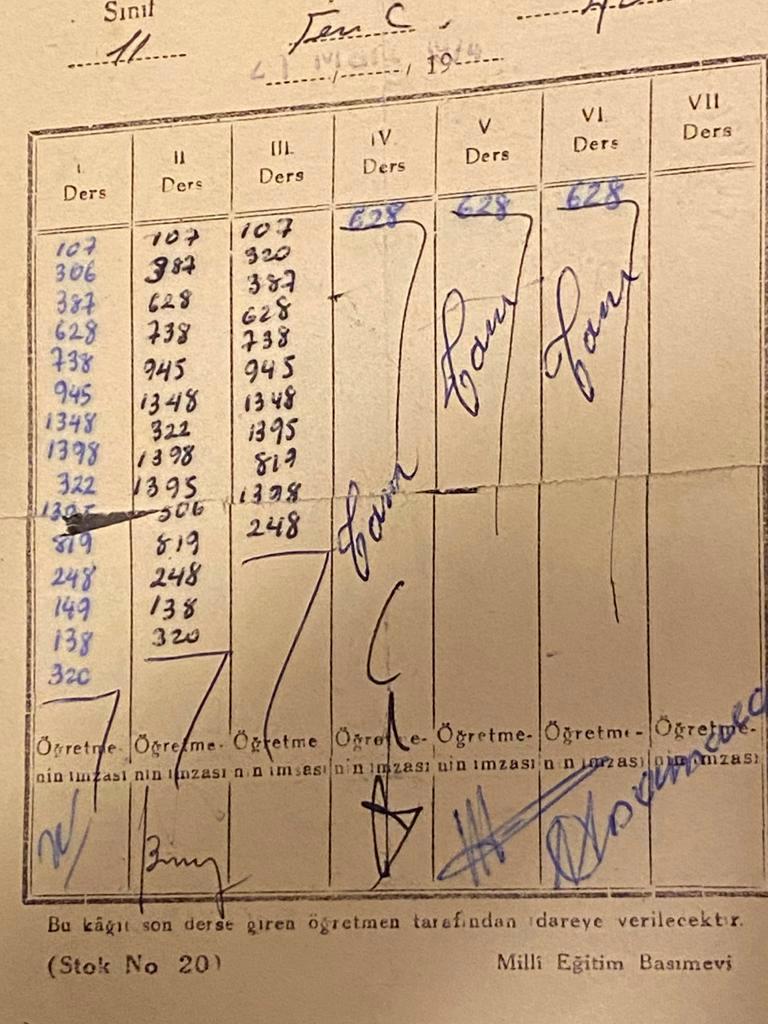 Sınıf
11 Fen C.
/ / 19
I II III. IV V VI VII
Ders Ders Ders Ders Ders Ders Ders
107 107 107 628 628 628
306 387 320
387 628 387
628 738 628
738 945 738
945 1348 945
1348 322 1348
1398 1398 1395
322 1395 819
1395 306 1398
819 819 248
248 248
149 138
138 320
320
Tam Tam Tam
Öğretme- Öğretme- Öğretme Öğretme- Öğretme- Öğretme- Öğretme-
nin imzası nin imzası nin imsası nin imzası nin imzası nin imzası nin imzası
Bu kâğıt son derse giren öğretmen tarafından idareye verilecektir.
(Stok No 20) Milli Eğitim Basımevi